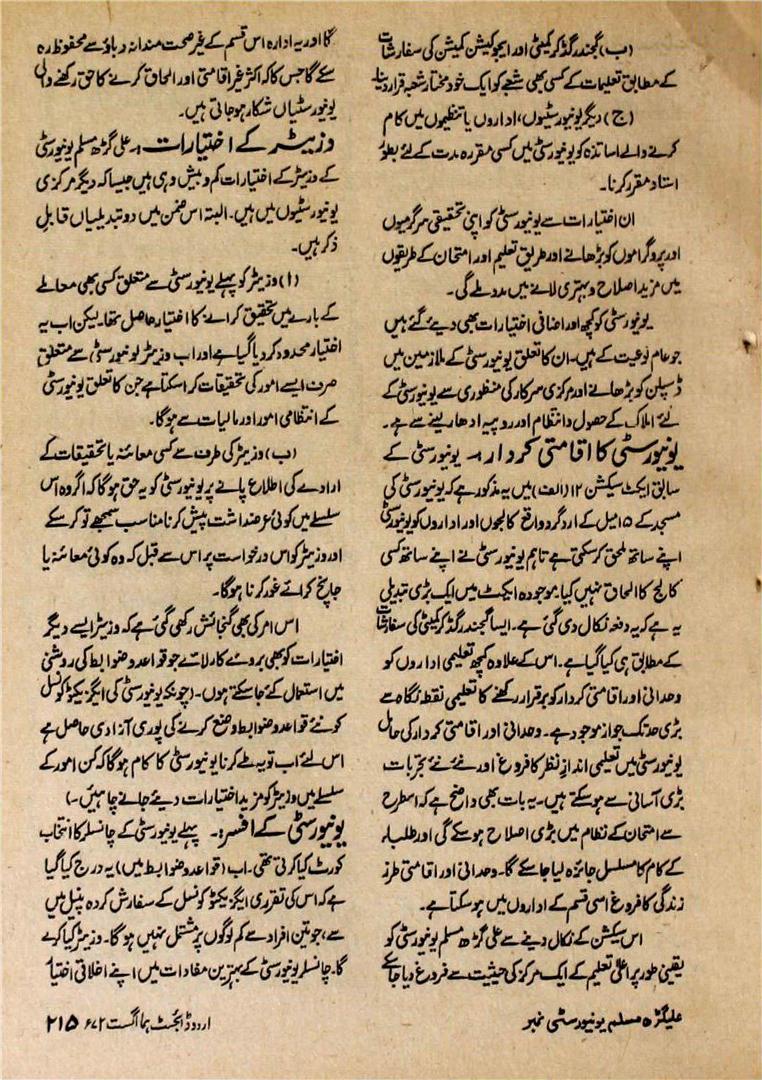 (ب) گجندر گڈکر کمیٹی اور ایجوکیشن کمیشن کی سفارشات
کے مطابق تعلیمات کے کسی بھی شعبے کو ایک خود مختار شعبہ قرار دینا۔
(ج) دیگر یونیورسٹیوں، اداروں یا تنظیموں میں کام
کرنے والے اساتذہ کو یونیورسٹی میں کسی مقررہ مدت کے لئے بطور
استاد مقرر کرنا۔
ان اختیارات سے یونیورسٹی کو اپنی تحقیقی سرگرمیوں
اور پروگراموں کو بڑھانے اور طریق تعلیم اور امتحان کے طریقوں
میں مزید اصلاح و بہتری لانے میں مدد ملے گی۔
یونیورسٹی کو کچھ اور اضافی اختیارات بھی دیئے گئے ہیں
جو عام نوعیت کے ہیں۔ ان کا تعلق یونیورسٹی کے ملازمین میں
ڈسپلن کو بڑھانے اور مرکزی سرکار کی منظوری سے یونیورسٹی کے
لئے املاک کے حصول و انتظام اور روپیہ ادھار لینے سے ہے۔
یونیورسٹی کا اقامتی کردار:۔ یونیورسٹی کے
سابق ایکٹ سیکشن ۱۲ (الف) میں یہ مذکور ہے کہ یونیورسٹی کی
مسجد کے ۱۵ میل کے ارد گرد واقع کالجوں اور اداروں کو یونیورسٹی
اپنے ساتھ ملحق کر سکتی ہے تاہم یونیورسٹی نے اپنے ساتھ کسی
کالج کا الحاق نہیں کیا۔ موجودہ ایکٹ میں ایک بڑی تبدیلی
یہ ہے کہ یہ دفعہ نکال دی گئی ہے۔ ایسا گجندر گڈکر کمیٹی کی سفارشات
کے مطابق ہی کیا گیا ہے۔ اس کے علاوہ کچھ تعلیمی اداروں کو
وحدانی اور اقامتی کردار کو برقرار رکھنے کا تعلیمی نقطۂ نگاہ سے
بڑی حد تک جواز موجود ہے۔ وحدانی اور اقامتی کردار کی حامل
یونیورسٹی میں تعلیمی انداز نظر کا فروغ اور نئے نئے تجربات
بڑی آسانی سے ہو سکتے ہیں۔ یہ بات بھی واضح ہے کہ اسطرح
سے امتحان کے نظام میں بڑی اصلاح ہو سکے گی اور طلباء
کے کام کا مسلسل جائزہ لیا جا سکے گا۔ وحدانی اور اقامتی طرز
زندگی کا فروغ اسی قسم کے اداروں میں ہو سکتا ہے۔
اس سیکشن کے نکال دینے سے علی گڑھ مسلم یونیورسٹی کو
یقینی طور پر اعلیٰ تعلیم کے ایک مرکز کی حیثیت سے فروغ دیا جا سکے
گا اور یہ ادارہ اس قسم کے غیر صحت مندانہ دباؤ سے محفوظ رہ
سکے گا جس کا کہ اکثر غیر اقامتی اور الحاق کرنے کا حق رکھنے والی
یونیورسٹیاں شکار ہو جاتی ہیں۔
وزیٹر کے اختیارات:۔ علی گڑھ مسلم یونیورسٹی
کے وزیٹر کے اختیارات کم و بیش وہی ہیں جیسا کہ دیگر مرکزی
یونیورسٹیوں میں ہیں۔ البتہ اس ضمن میں دو تبدیلیاں قابل
ذکر ہیں۔
(ا) وزیٹر کو پہلے یونیورسٹی سے متعلق کسی بھی معاملے
کے بارے میں تحقیق کرانے کا اختیار حاصل تھا۔ لیکن اب یہ
اختیار محدود کر دیا گیا ہے اور اب وزیٹر یونیورسٹی سے متعلق
صرف ایسے امور کی تحقیقات کرا سکتا ہے جن کا تعلق یونیورسٹی
کے انتظامی امور اور مالیات سے ہوگا۔
(ب) وزیٹر کی طرف سے کسی معائنہ یا تحقیقات کے
ارادے کی اطلاع پانے پر یونیورسٹی کو یہ حق ہوگا کہ اگر وہ اس
سلسلے میں کوئی عرضداشت پیش کرنا مناسب سمجھے تو کر سکے
اور وزیٹر کو اس درخواست پر اس سے قبل کہ وہ کوئی معائنہ یا
جانچ کرائے غور کرنا ہوگا۔
اس امر کی بھی گنجائش رکھی گئی ہے کہ وزیٹر ایسے دیگر
اختیارات کو بھی بروئے کار لائے جو قواعد و ضوابط کی روشنی
میں استعمال کئے جا سکتے ہوں۔ (چونکہ یونیورسٹی کی ایگزیکٹو کونسل
کو نئے قواعد و ضوابط وضع کرنے کی پوری آزادی حاصل ہے
اس لئے اب تو یہ طے کرنا یونیورسٹی کا کام ہوگا کہ کن امور کے
سلسلے میں وزیٹر کو مزید اختیارات دیئے جانے چاہئیں۔)
یونیورسٹی کے افسر:۔ پہلے یونیورسٹی کے چانسلر کا انتخاب
کورٹ کیا کرتی تھی۔ اب (قواعد و ضوابط میں) یہ درج کیا گیا
ہے کہ اس کی تقرری ایگزیکٹو کونسل کے سفارش کردہ پینل میں
سے، جو تین افراد سے کم لوگوں پر مشتمل نہیں ہوگا۔ وزیٹر کیا کرے
گا۔ چانسلر یونیورسٹی کے بہترین مفادات میں اپنے اخلاقی اختیار
علیگڑھ مسلم یونیورسٹی نمبر
اردو ڈائجسٹ ہما اگست ۶۷۲ ۲۱۵